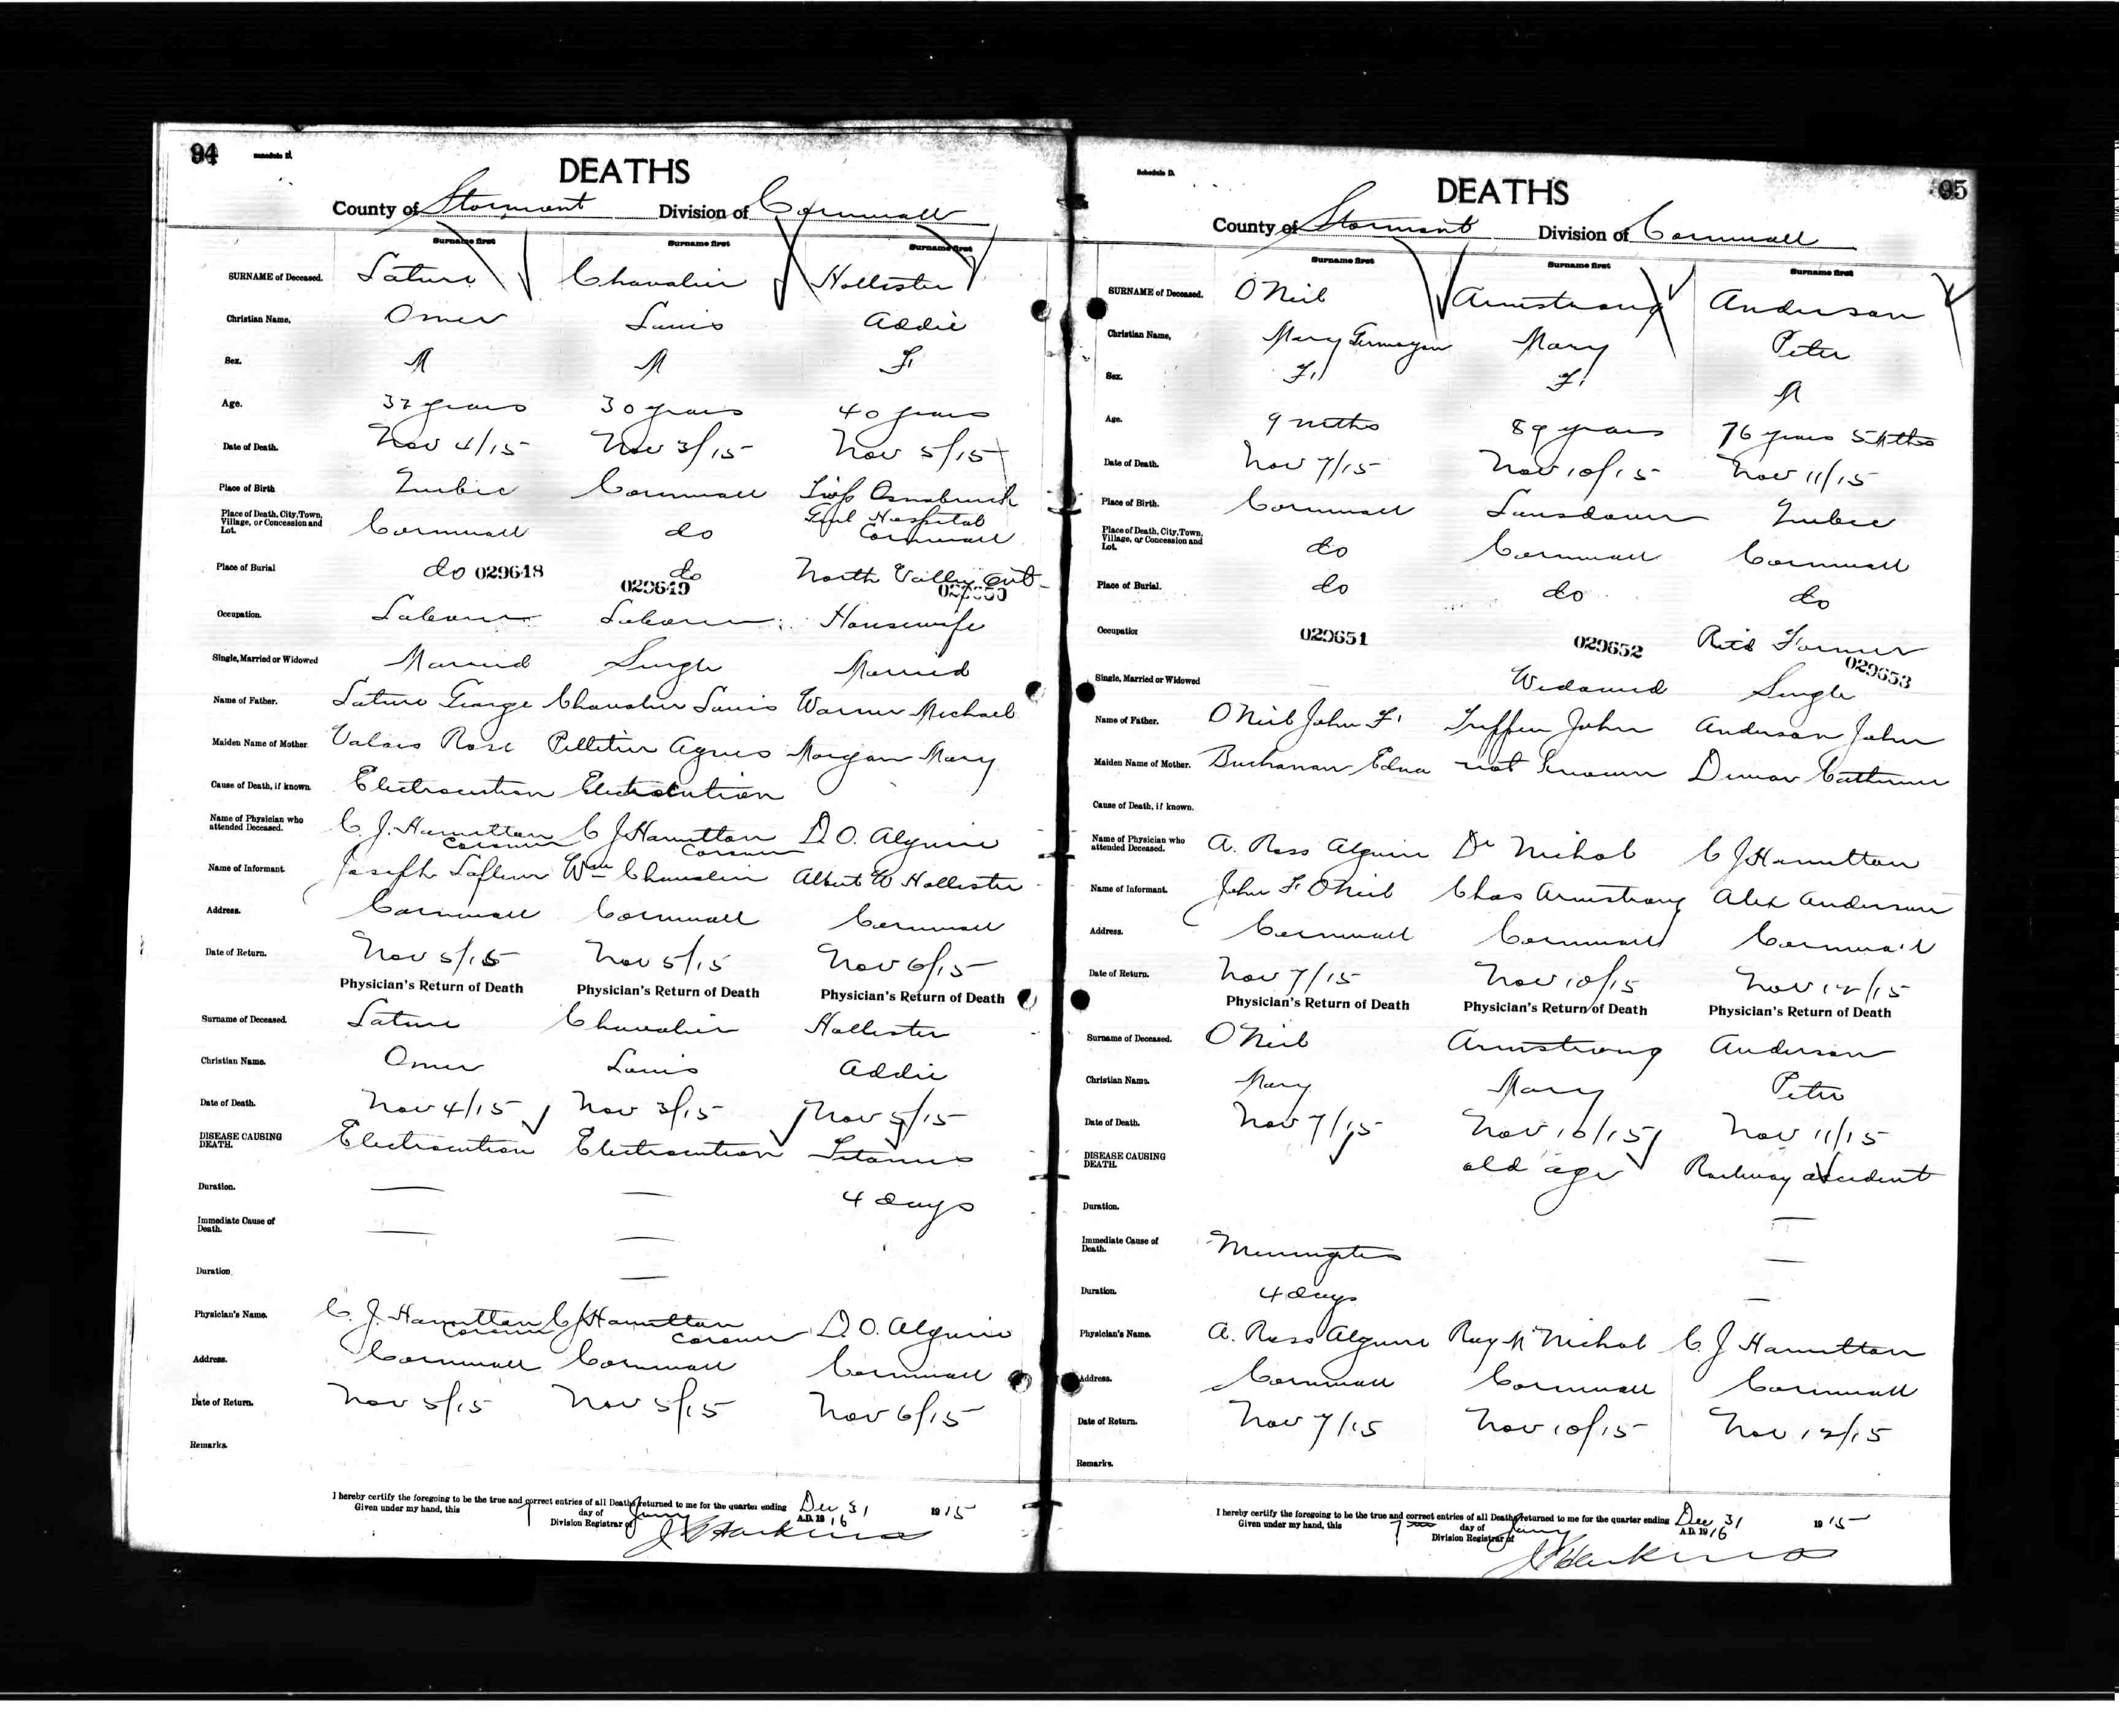 94
Schedule D.
DEATHS
County of Stormont Division of Cornwall
Surname first Surname first Surname first
SURNAME of Deceased. Lature Chevalier Hollister
Christian Name, Omer Louis Addie
Sex. M M F.
Age. 37 years 30 years 40 years
Date of Death. Nov 4/15 Nov 3/15 Nov 5/15
Place of Birth Quebec Cornwall Osnabruck
Place of Death, City, Town, Village, or Concession and Lot. Cornwall do Genl Hospital Cornwall
Place of Burial do do North Valley Ont
029648 029649
Occupation. Laborer Laborer Housewife
Single, Married or Widowed Married Single Married
Name of Father. Lature George Chevalier Louis Warner Michael
Maiden Name of Mother. Valois Rose Pelletier Agnes Morgan Mary
Cause of Death, if known. Electrocution Electrocution
Name of Physician who attended Deceased. C. J. Hamilton Coroner C J Hamilton Coroner D. O. Alguire
Name of Informant. Joseph Lafleur Wm Chevalier Albert W Hollister
Address. Cornwall Cornwall Cornwall
Date of Return. Nov 5/15 Nov 5/15 Nov 6/15
Physician's Return of Death Physician's Return of Death Physician's Return of Death
Surname of Deceased. Lature Chevalier Hollister
Christian Name. Omer Louis Addie
Date of Death. Nov 4/15 Nov 3/15 Nov 5/15
DISEASE CAUSING DEATH. Electrocution Electrocution Tetanus
Duration. — — 4 days
Immediate Cause of Death. — —
Duration. —
Physician's Name. C. J. Hamilton Coroner C J Hamilton Coroner D. O. Alguire
Address. Cornwall Cornwall Cornwall
Date of Return. Nov 5/15 Nov 5/15 Nov 6/15
Remarks.
I hereby certify the foregoing to be the true and correct entries of all Deaths returned to me for the quarter ending Dec 31 1915
Given under my hand, this 7 day of Jany A.D. 1916
Division Registrar of
95
Schedule D.
DEATHS
County of Stormont Division of Cornwall
Surname first Surname first Surname first
SURNAME of Deceased. O'Neil Armstrong Anderson
Christian Name, Mary Mary Peter
Sex. F. F. M
Age. 9 mths 89 years 76 years 5 Mths
Date of Death. Nov 7/15 Nov 10/15 Nov 11/15
Place of Birth. Cornwall Lansdown Quebec
Place of Death, City, Town, Village, or Concession and Lot. do Cornwall Cornwall
Place of Burial. do do do
Occupation 029651 029652 Retd Farmer
029653
Single, Married or Widowed — Widowed Single
Name of Father. O'Neil John F. John Anderson John
Maiden Name of Mother. Buchanan Edna not known Catherine
Cause of Death, if known.
Name of Physician who attended Deceased. A. Ross Alguire Dr Nichol C J Hamilton
Name of Informant. John F. O'Neil Chas Armstrong Alex Anderson
Address. Cornwall Cornwall Cornwall
Date of Return. Nov 7/15 Nov 10/15 Nov 12/15
Physician's Return of Death Physician's Return of Death Physician's Return of Death
Surname of Deceased. O'Neil Armstrong Anderson
Christian Name. Mary Mary Peter
Date of Death. Nov 7/15 Nov 10/15 Nov 11/15
DISEASE CAUSING DEATH. old age Railway accident
Duration. —
Immediate Cause of Death. Meningitis —
Duration. 4 days —
Physician's Name. A. Ross Alguire Roy M Nichol C. J Hamilton
Address. Cornwall Cornwall Cornwall
Date of Return. Nov 7/15 Nov 10/15 Nov 12/15
Remarks.
I hereby certify the foregoing to be the true and correct entries of all Deaths returned to me for the quarter ending Dec 31 1915
Given under my hand, this 7 day of Jany A.D. 1916
Division Registrar of